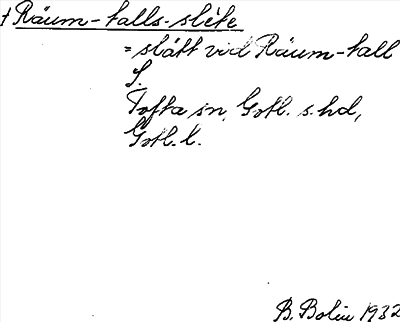 † Räum-kalls-släke
= slätt vid Räum-kall
S.
Tofta sn, Gotl. s. hd,
Gotl. l.
B. Bolin 1932